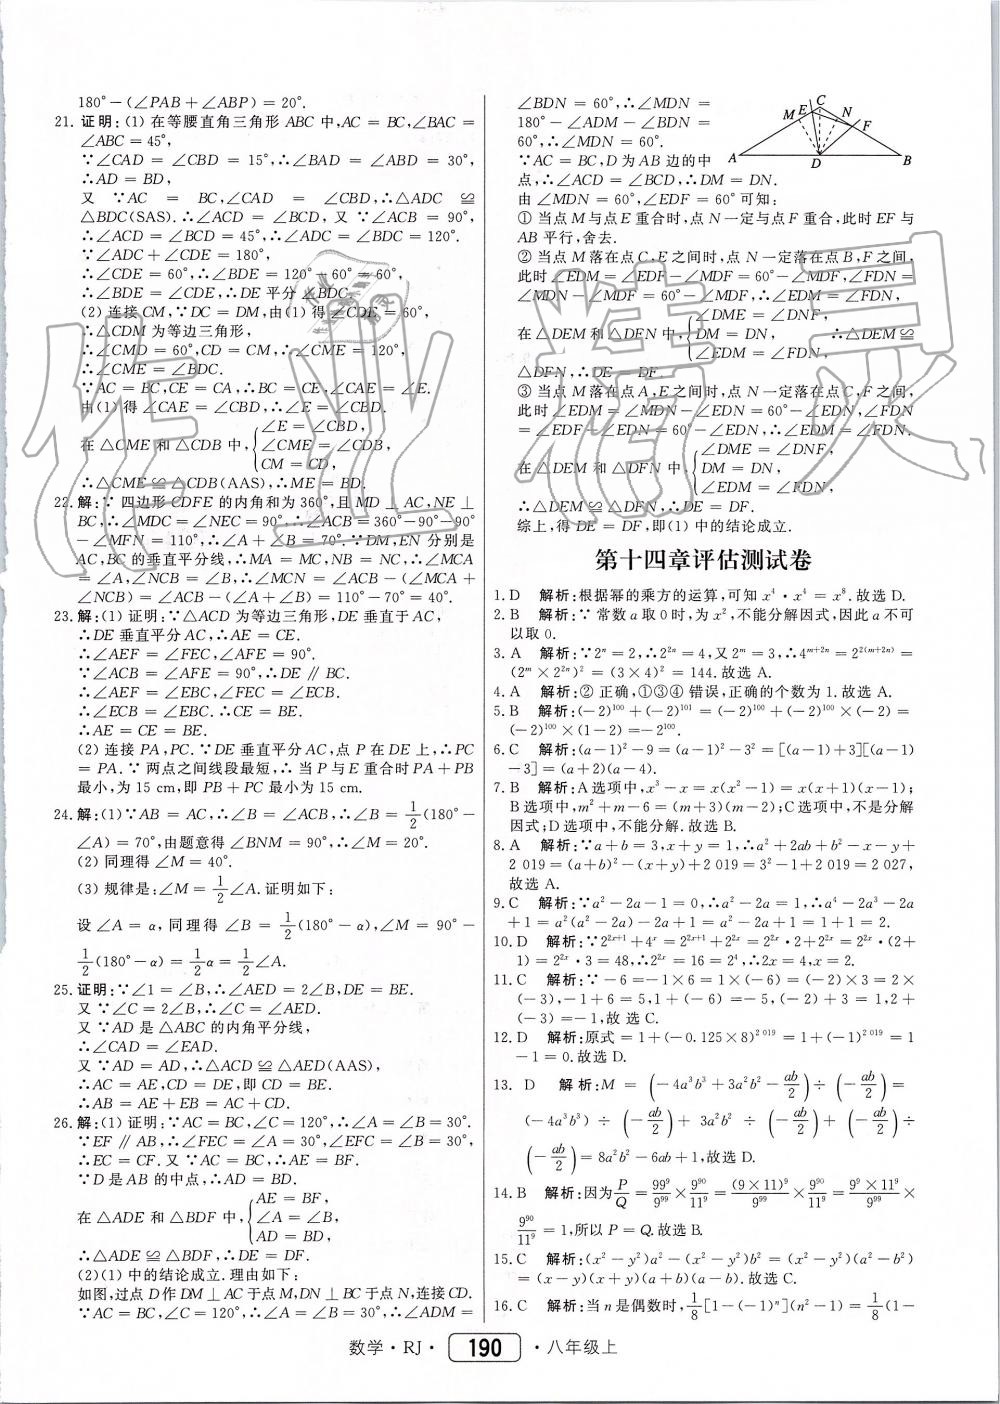 180°-(∠PAB+∠ABP)=20°.
21. 证明:(1)在等腰直角三角形 ABC 中,AC=BC,∠BAC=
∠ABC=45°,
∵∠CAD=∠CBD=15°,∴∠BAD=∠ABD=30°,
∴AD=BD,
又 ∵AC=BC,∠CAD=∠CBD,∴△ADC≌
△BDC(SAS).∴∠ACD=∠BCD, 又 ∵∠ACB=90°,
∴∠ACD=∠BCD=45°,∴∠ADC=∠BDC=120°.
∵∠ADC+∠CDE=180°,
∴∠CDE=60°,∴∠BDE=120°-60°=60°,
∴∠BDE=∠CDE,∴DE 平分∠BDC.
(2)连接 CM,∵DC=DM,由(1)得∠CDE=60°,
∴△CDM 为等边三角形,
∴∠CMD=60°,CD=CM,∴∠CME=120°,
∴∠CME=∠BDC.
∵AC=BC,CE=CA,∴BC=CE,∠CAE=∠E.
由(1)得∠CAE=∠CBD,∴∠E=∠CBD.
在△CME 和△CDB 中,{∠E=∠CBD,
∠CME=∠CDB,
CM=CD,
∴△CME≌△CDB(AAS),∴ME=BD.
22. 解:∵ 四边形 CDFE 的内角和为 360°,且 MD⊥AC,NE⊥
BC,∴∠MDC=∠NEC=90°,∴∠ACB=360°-90°-90°
-∠MFN=110°,∴∠A+∠B=70°.∵DM,EN 分别是
AC,BC 的垂直平分线,∴MA=MC,NB=NC,∴∠MCA
=∠A,∠NCB=∠B,∴∠MCN=∠ACB-(∠MCA+
∠NCB)=∠ACB-(∠A+∠B)=110°-70°=40°.
23. 解:(1)证明:∵△ACD 为等边三角形,DE 垂直于 AC,
∴DE 垂直平分 AC,∴AE=CE.
∴∠AEF=∠FEC,∠AFE=90°.
∵∠ACB=∠AFE=90°,∴DE∥BC.
∴∠AEF=∠EBC,∠FEC=∠ECB.
∴∠ECB=∠EBC.∴CE=BE.
∴AE=CE=BE.
(2)连接 PA,PC.∵DE 垂直平分 AC,点 P 在 DE 上,∴PC
=PA.∵ 两点之间线段最短,∴ 当 P 与 E 重合时 PA+PB
最小,为 15 cm,即 PB+PC 最小为 15 cm.
24. 解:(1)∵AB=AC,∴∠B=∠ACB,∴∠B=1/2(180°-
∠A)=70°,由题意得∠BNM=90°,∴∠M=20°.
(2)同理得∠M=40°.
(3)规律是:∠M=1/2∠A.证明如下:
设∠A=α,同理得∠B=1/2(180°-α),∠M=90°-
1/2(180°-α)=1/2α=1/2∠A.
25. 证明:∵∠1=∠B,∴∠AED=2∠B,DE=BE.
又 ∵∠C=2∠B,∴∠C=∠AED.
又 ∵AD 是△ABC 的内角平分线,
∴∠CAD=∠EAD.
又 ∵AD=AD,∴△ACD≌△AED(AAS),
∴AC=AE,CD=DE,即 CD=BE.
∴AB=AE+EB=AC+CD.
26. 解:(1)证明:∵AC=BC,∠C=120°,∴∠A=∠B=30°.
∵EF∥AB,∴∠FEC=∠A=30°,∠EFC=∠B=30°,
∴EC=CF.又 ∵AC=BC,∴AE=BF.
∵D 是 AB 的中点,∴AD=BD.
在△ADE 和△BDF 中,{AE=BF,
∠A=∠B,
AD=BD,
∴△ADE≌△BDF,∴DE=DF.
(2)(1)中的结论成立.理由如下:
如图,过点 D 作 DM⊥AC 于点 M,DN⊥BC 于点 N,连接 CD.
∵AC=BC,∠C=120°,∴∠A=∠B=30°,∴∠ADM=
∠BDN=60°,∴∠MDN=
180°-∠ADM-∠BDN=
60°,∴∠MDN=60°.
∵AC=BC,D 为 AB 边的中
点,∴∠ACD=∠BCD,∴DM=DN.
由∠MDN=60°,∠EDF=60°可知:
① 当点 M 与点 E 重合时,点 N 一定与点 F 重合,此时 EF 与
AB 平行,舍去.
② 当点 M 落在点 C,E 之间时,点 N 一定落在点 B,F 之间,
此时∠EDM=∠EDF-∠MDF=60°-∠MDF,∠FDN=
∠MDN-∠MDF=60°-∠MDF,∴∠EDM=∠FDN,
在△DEM 和△DFN 中,{∠DME=∠DNF,
DM=DN,
∠EDM=∠FDN,
∴△DEM≌
△DFN,∴DE=DF.
③ 当点 M 落在点 A,E 之间时,点 N 一定落在点 C,F 之间,
此时∠EDM=∠MDN-∠EDN=60°-∠EDN,∠FDN
=∠EDF-∠EDN=60°-∠EDN,∴∠EDM=∠FDN.
在△DEM 和△DFN 中,{∠DME=∠DNF,
DM=DN,
∠EDM=∠FDN,
∴△DEM≌△DFN,∴DE=DF.
综上,得 DE=DF,即(1)中的结论成立.
C
M
E
N
F
A
D
B
第十四章评估测试卷
1. D 解析:根据幂的乘方的运算,可知 x⁴·x⁴=x⁸.故选 D.
2. B 解析:∵ 常数 a 取 0 时,为 x²,不能分解因式,因此 a 不可
以取 0.
3. A 解析:∵2ⁿ=2,∴2²ⁿ=4,又 2ᵐ=3,∴4ᵐ⁺²ⁿ=2²⁽ᵐ⁺²ⁿ⁾=
(2ᵐ×2²ⁿ)²=(3×4)²=144.故选 A.
4. A 解析:② 正确,①③④ 错误,正确的个数为 1.故选 A.
5. B 解析:(-2)¹⁰⁰+(-2)¹⁰¹=(-2)¹⁰⁰+(-2)¹⁰⁰×(-2)=
(-2)¹⁰⁰×(1-2)=-2¹⁰⁰.
6. C 解析:(a-1)²-9=(a-1)²-3²=[(a-1)+3][(a-1)
-3]=(a+2)(a-4).
7. B 解析:A 选项中,x³-x=x(x²-1)=x(x+1)(x-1);
B 选项中,m²+m-6=(m+3)(m-2);C 选项中,不是分解
因式;D 选项中,不能分解.故选 B.
8. A 解析:∵a+b=3,x+y=1,∴a²+2ab+b²-x-y+
2 019=(a+b)²-(x+y)+2 019=3²-1+2 019=2 027,
故选 A.
9. C 解析:∵a²-2a-1=0,∴a²-2a=1,∴a⁴-2a³-2a
+1=a²(a²-2a)-2a+1=a²-2a+1=1+1=2.
10. D 解析:∵2²ˣ⁺¹+4ˣ=2²ˣ⁺¹+2²ˣ=2²ˣ·2+2²ˣ=2²ˣ·(2+
1)=2²ˣ·3=48,∴2²ˣ=16=2⁴,∴2x=4,x=2.
11. C 解析:∵-6=-1×6=1×(-6)=(-2)×3=2×
(-3),-1+6=5,1+(-6)=-5,(-2)+3=1,2+
(-3)=-1,故选 C.
12. D 解析:原式=1+(-0.125×8)²⁰¹⁹=1+(-1)²⁰¹⁹=1
-1=0.故选 D.
13. D 解析:M=(-4a³b³+3a²b²-ab/2)÷(-ab/2)=
(-4a³b³)÷(-ab/2)+3a²b²÷(-ab/2)+(-ab/2)÷
(-ab/2)=8a²b²-6ab+1,故选 D.
14. B 解析:因为 P/Q=99⁹/9⁹⁹×9⁹⁰/11⁹=(9×11)⁹/9⁹⁹×9⁹⁰/11⁹=9⁹×11⁹/9⁹⁹×
9⁹⁰/11⁹=1,所以 P=Q.故选 B.
15. C 解析:(x²-y²)a²-(x²-y²)b²=(x²-y²)(a²-b²)
=(x-y)(x+y)(a+b)(a-b).
16. C 解析:当 n 是偶数时,1/8[1-(-1)ⁿ](n²-1)=1/8(1-
数学·RJ· 190 ·八年级上
作业精灵